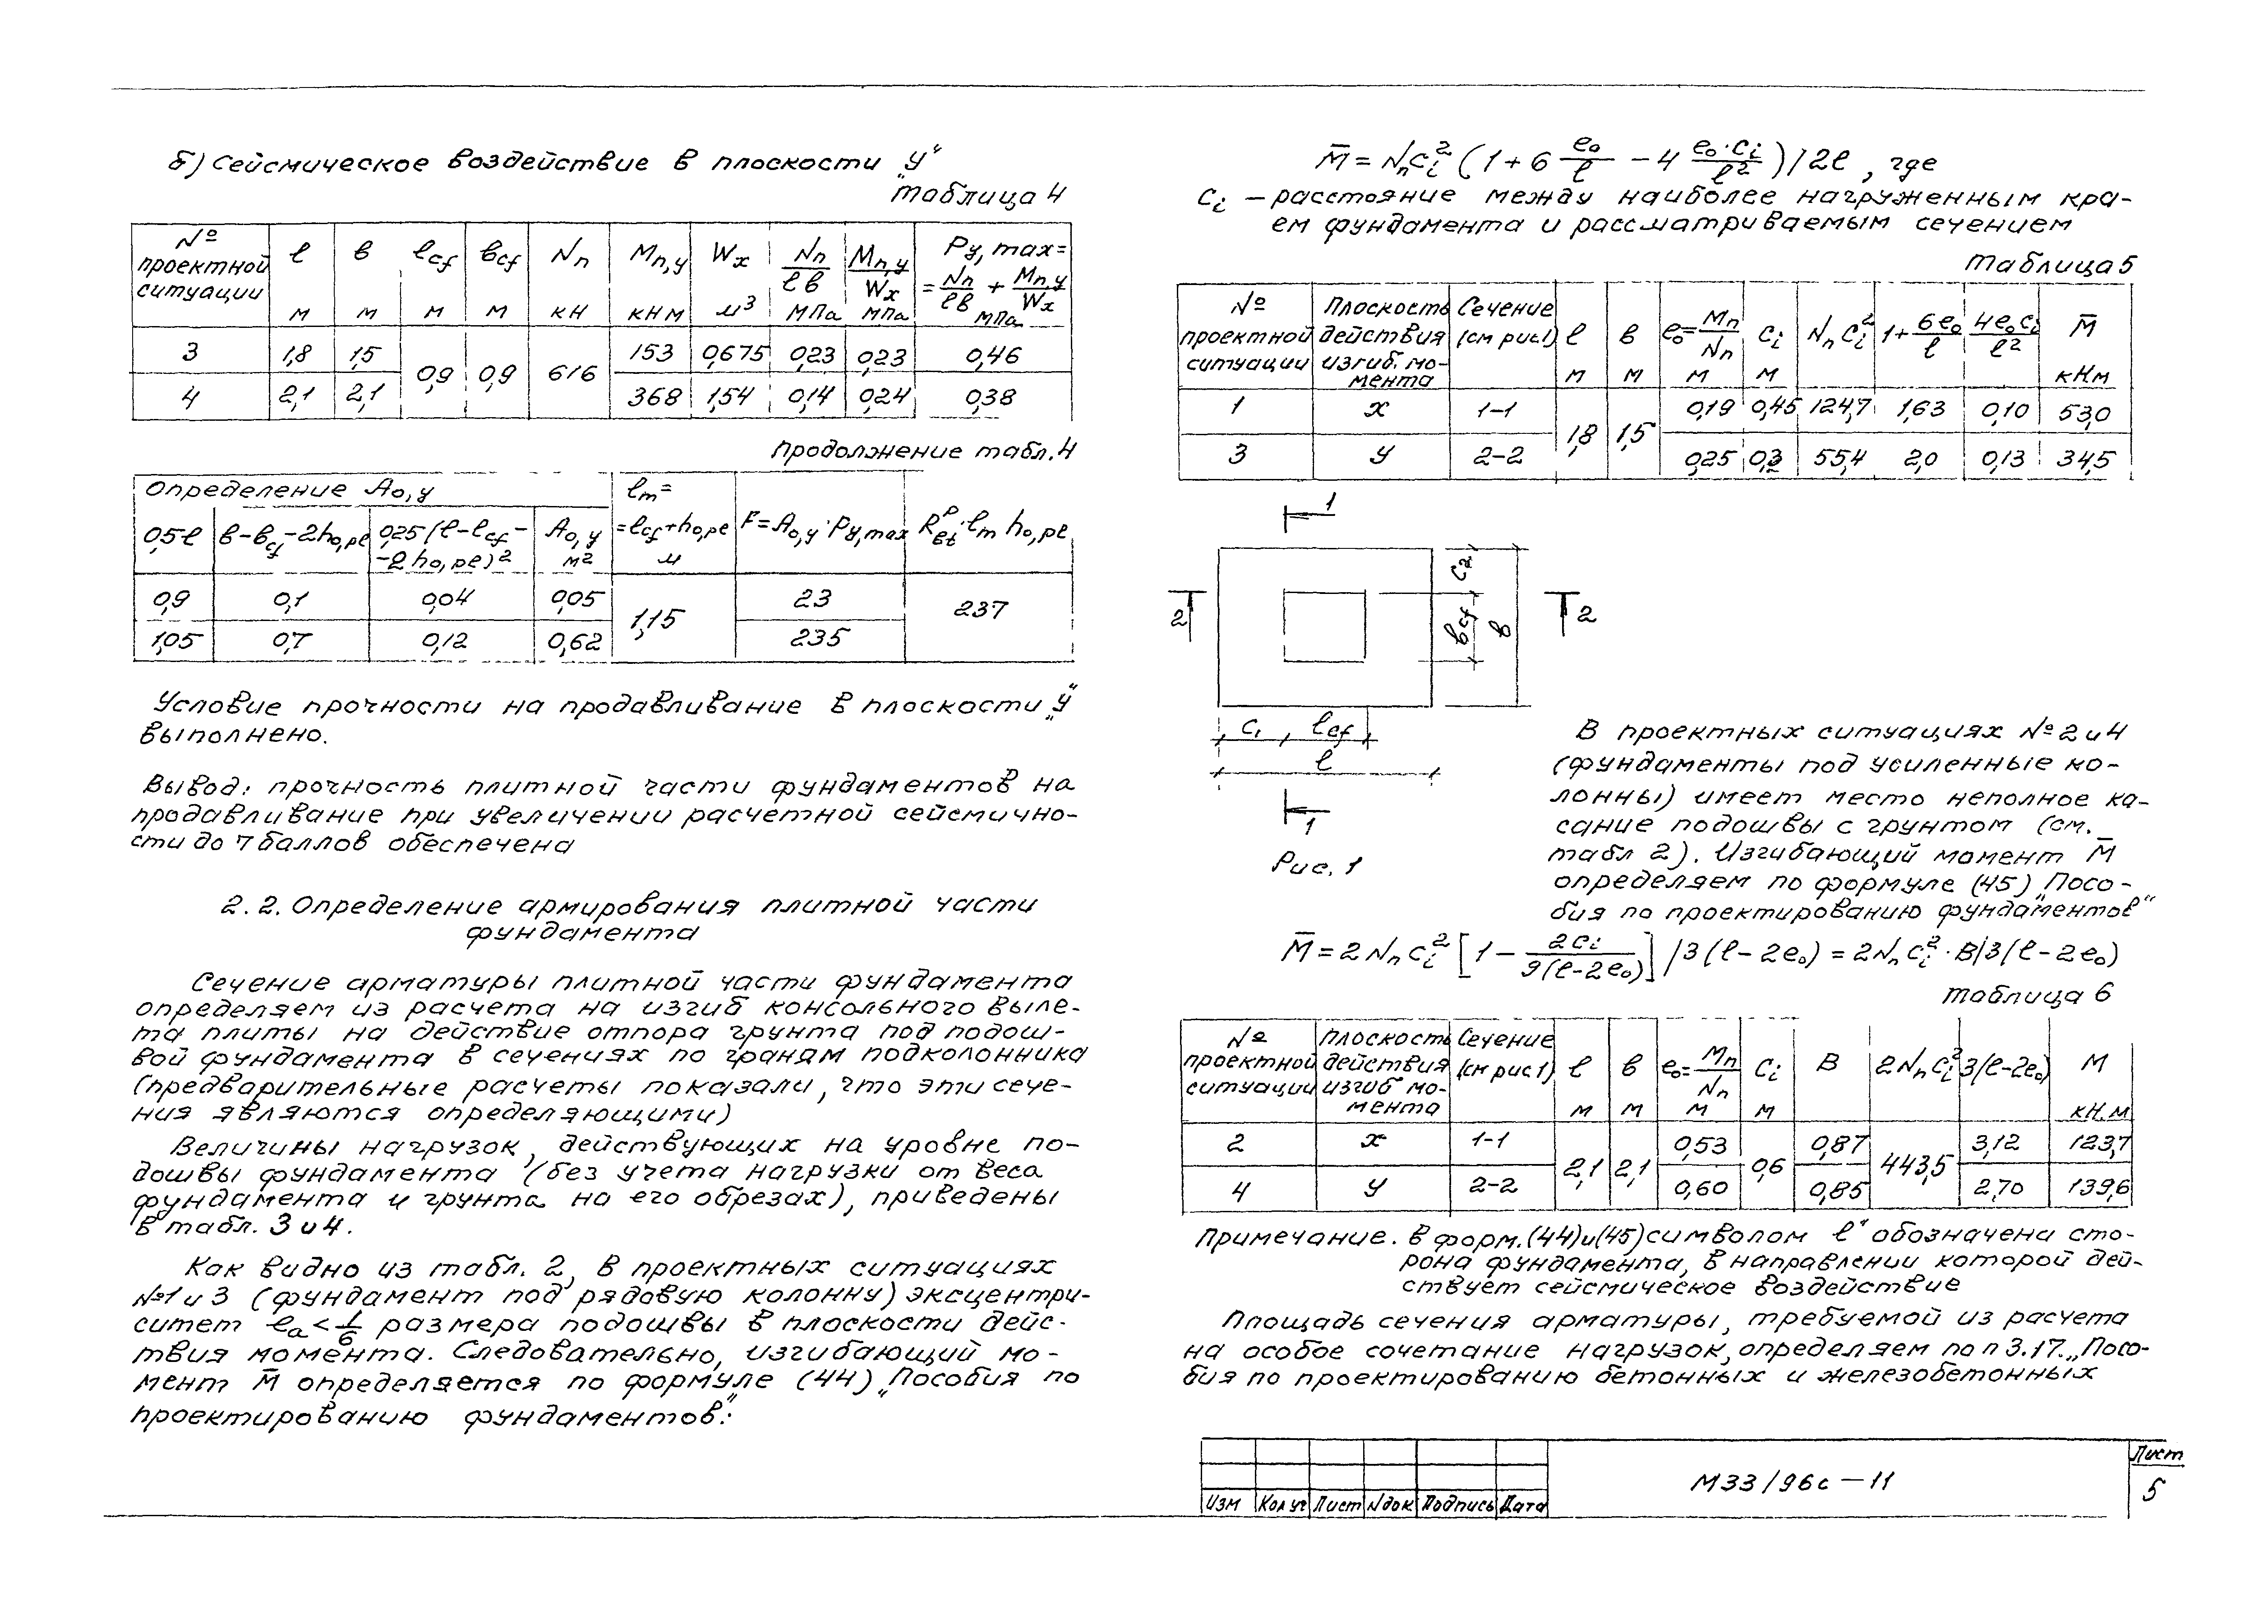 б) Сейсмическое воздействие в плоскости „у“
таблица 4
№ проектной ситуации | l м | в м | l_cf м | в_cf м | N_п кН | M_п,у кНм | W_x м³ | N_п/lв МПа | M_п,у/W_x МПа | P_у,max= =N_п/lв + M_п,у/W_x МПа
3 | 1,8 | 1,5 | 0,9 | 0,9 | 616 | 153 | 0,675 | 0,23 | 0,23 | 0,46
4 | 2,1 | 2,1 | 368 | 1,54 | 0,14 | 0,24 | 0,38
Продолжение табл. 4
Определение А_о,у | l_m= =l_cf+h_о,pl м | F=А_о,у·P_у,max | R_bt^p·l_m h_о,pl
0,5·l | в-в_cf-2h_о,pl | 0,25(l-l_cf--2h_о,pl)² | А_о,у м²
0,9 | 0,1 | 0,04 | 0,05 | 1,15 | 23 | 237
1,05 | 0,7 | 0,12 | 0,62 | 235
Условие прочности на продавливание в плоскости „у“
выполнено.
Вывод: прочность плитной части фундаментов на
продавливание при увеличении расчетной сейсмично-
сти до 7 баллов обеспечена
2.2. Определение армирования плитной части
фундамента
Сечение арматуры плитной части фундамента
определяем из расчета на изгиб консольного выле-
та плиты на действие отпора грунта под подош-
вой фундамента в сечениях по граням подколонника
(предварительные расчеты показали, что эти сече-
ния являются определяющими)
Величины нагрузок, действующих на уровне по-
дошвы фундамента (без учета нагрузки от веса
фундамента и грунта на его обрезах), приведены
в табл. 3 и 4.
Как видно из табл. 2, в проектных ситуациях
№1 и 3 (фундамент под рядовую колонну) эксцентри-
ситет e_a < 1/6 размера подошвы в плоскости дейс-
твия момента. Следовательно, изгибающий мо-
мент M̄ определяется по формуле (44) „Пособия по
проектированию фундаментов“:
M̄ = N_п c_i² (1 + 6 e_o/l - 4 e_o·c_i/l²)/2l, где
c_i - расстояние между наиболее нагруженным кра-
ем фундамента и рассматриваемым сечением
таблица 5
№ проектной ситуации | Плоскость действия изгиб. мо-мента | Сечение (см рис1) | l м | в м | e_o=M_п/N_п м | c_i м | N_п c_i² | 1+6e_o/l | 4e_o c_i/l² | M̄ кНм
1 | х | 1-1 | 1,8 | 1,5 | 0,19 | 0,45 | 124,7 | 1,63 | 0,10 | 53,0
3 | у | 2-2 | 0,25 | 0,3 | 55,4 | 2,0 | 0,13 | 34,5
1
c₂
2
в_cf
в
2
c₁ l_cf
l
1
Рис. 1
В проектных ситуациях № 2 и 4
(фундаменты под усиленные ко-
лонны) имеет место неполное ка-
сание подошвы с грунтом (см.
табл 2). Изгибающий момент M̄
определяем по формуле (45) „Посо-
бия по проектированию фундаментов“
M̄ = 2 N_п c_i² [1 - 2c_i/9(l-2e_o)] /3(l-2e_o) = 2N_п c_i²·B/3(l-2e_o)
таблица 6
№ проектной ситуации | Плоскость действия изгиб мо-мента | Сечение (см рис1) | l м | в м | e_o=M_п/N_п м | c_i м | B | 2N_п c_i² | 3(l-2e_o) | M кН.м
2 | х | 1-1 | 2,1 | 2,1 | 0,53 | 0,6 | 0,87 | 443,5 | 3,12 | 123,7
4 | у | 2-2 | 0,60 | 0,85 | 2,70 | 139,6
Примечание. в форм.(44)и(45)символом l“ обозначена сто-
рона фундамента, в направлении которой дей-
ствует сейсмическое воздействие
Площадь сечения арматуры, требуемой из расчета
на особое сочетание нагрузок, определяем по п 3.17. „Посо-
бия по проектированию бетонных и железобетонных
Изм | Кол уч | Лист | Nдок | Подпись | Дата
М33/96с-11
Лист
5